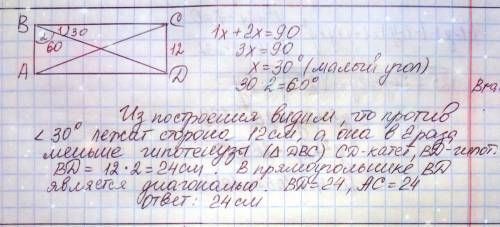 B
C
2
1
30
60
12
A
D
1x + 2x = 90
3x = 90
x = 30° (малый угол)
30·2 = 60°
Из построения видим, что против
∠30° лежит сторона 12см, а она в 2 раза
меньше гипотенузы (△DBC) CD-катет, BD-гипот.
BD = 12·2 = 24см. В прямоугольнике BD
является диагональю. BD=24, AC=24
ответ: 24см